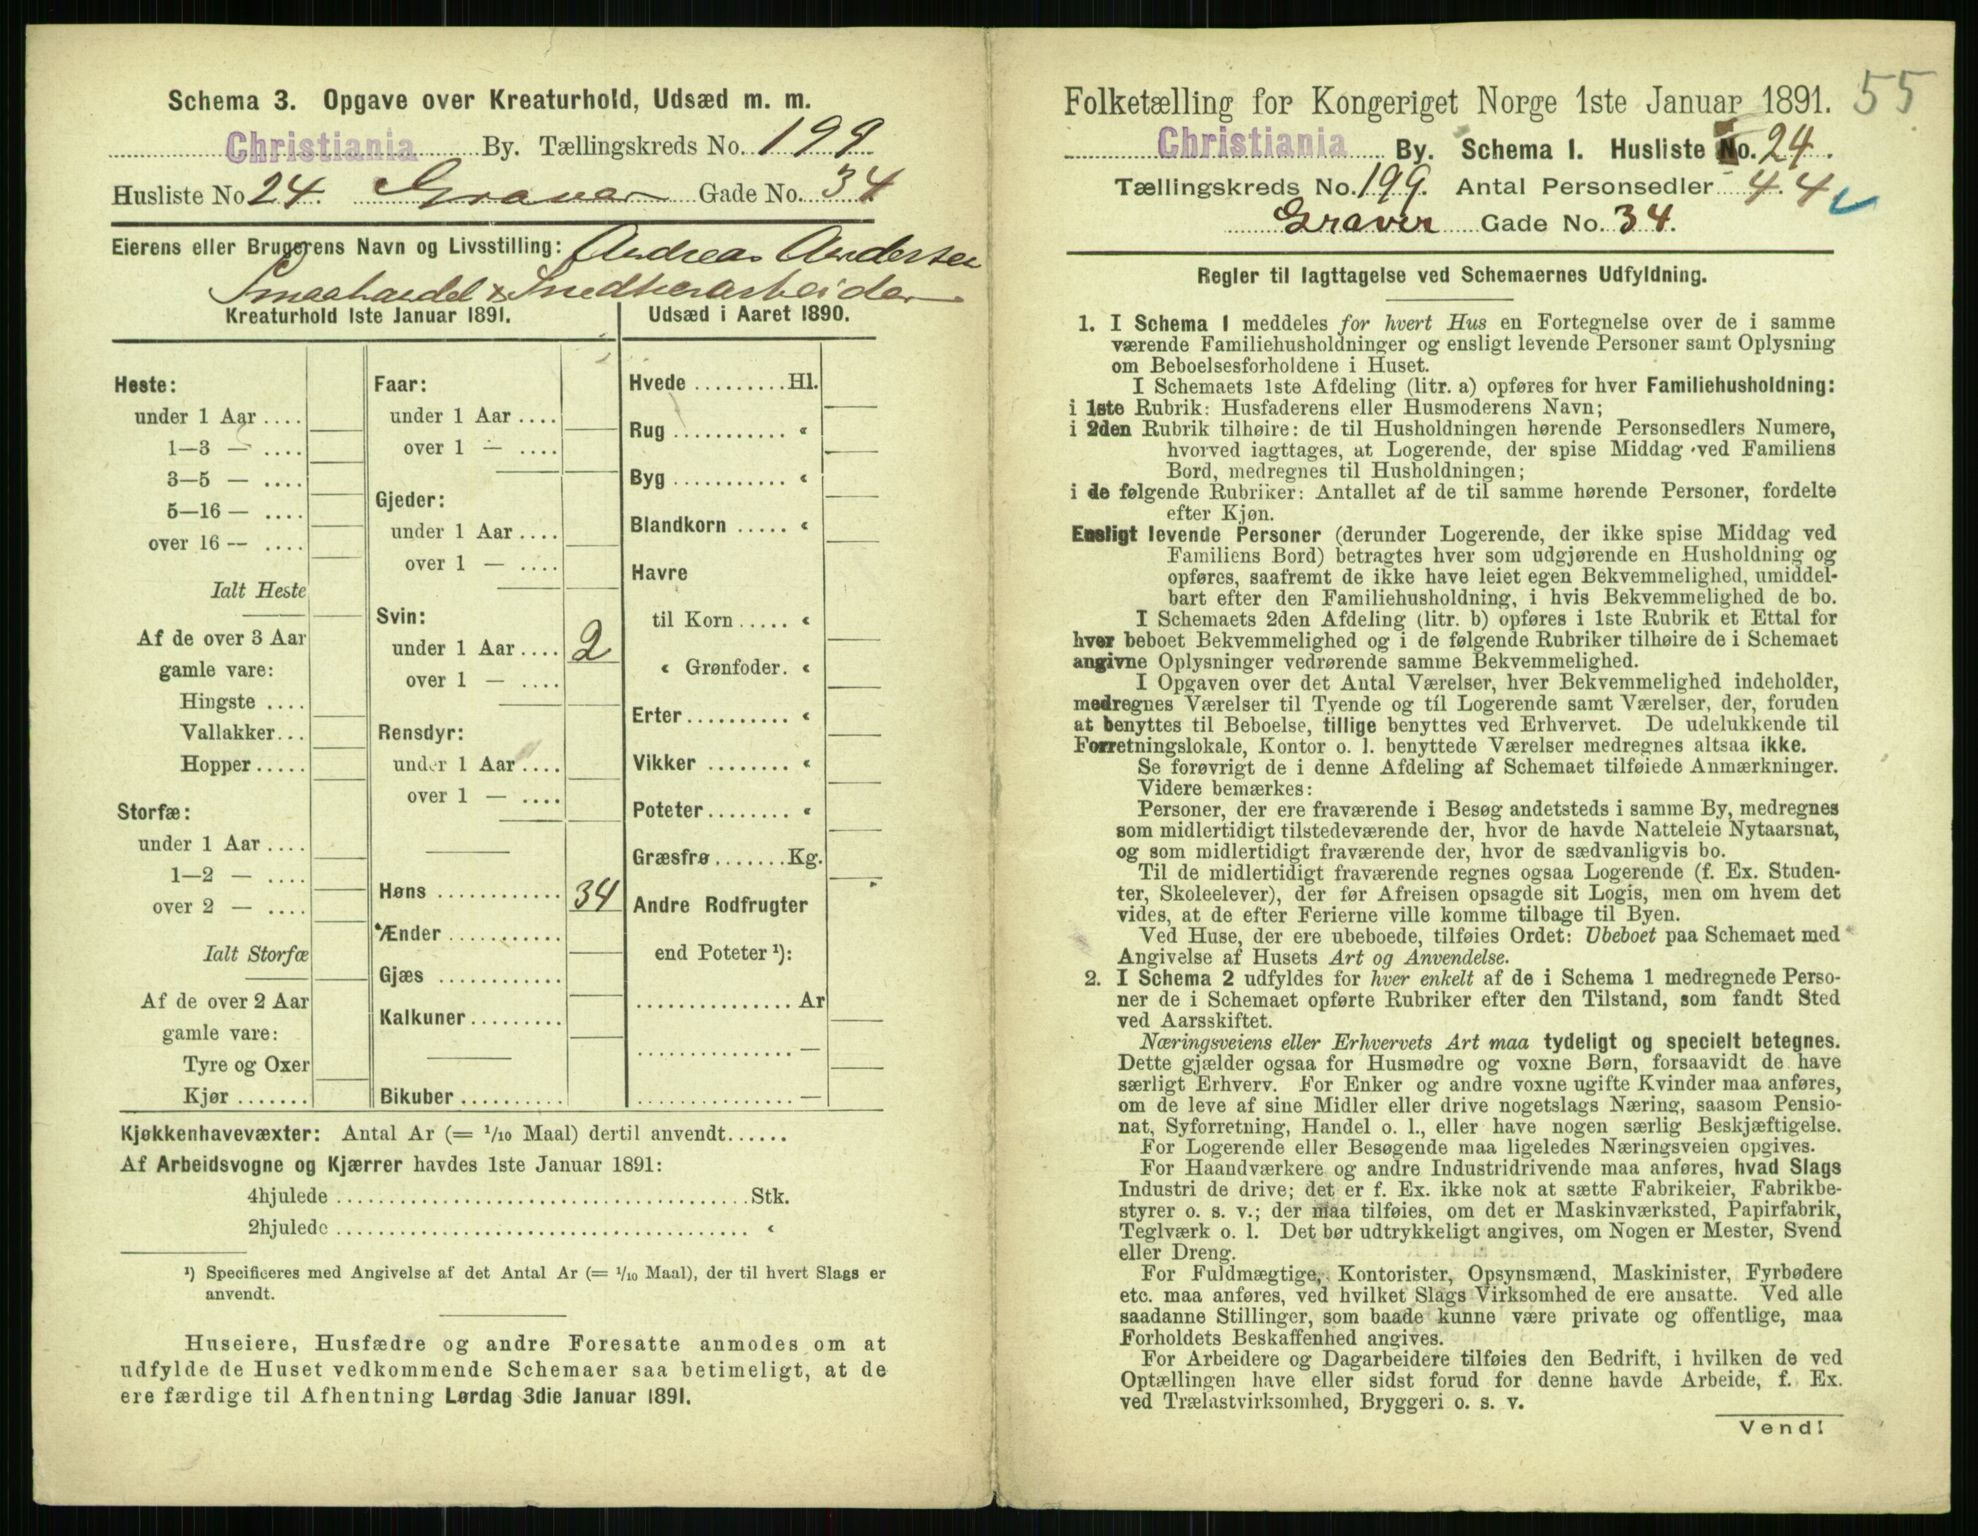 Schema 3. Opgave over Kreaturhold, Udsæd m. m.
Christiania By. Tællingskreds No. 199
Husliste No 24. Graver Gade No. 34
Eierens eller Brugerens Navn og Livsstilling: Andreas Andersen
Smaahandel & Snedkerarbeider
Kreaturhold 1ste Januar 1891.
Heste:
under 1 Aar ....
1—3 — ....
3—5 — ....
5—16 — ....
over 16 — ....
Ialt Heste
Af de over 3 Aar
gamle vare:
Hingste ....
Vallakker...
Hopper.....
Storfæ:
under 1 Aar ....
1—2 — ....
over 2 — ....
Ialt Storfæ
Af de over 2 Aar
gamle vare:
Tyre og Oxer
Kjør .......
Faar:
under 1 Aar ....
over 1 — ....
Gjeder:
under 1 Aar ....
over 1 — ....
Svin:
under 1 Aar .... 2
over 1 — ....
Rensdyr:
under 1 Aar ....
over 1 — ....
Høns ............ 34
Ænder ...........
Gjæs ............
Kalkuner.........
Bikuber ..........
Udsæd i Aaret 1890.
Hvede .........Hl.
Rug ........... «
Byg ........... «
Blandkorn ..... «
Havre
til Korn ..... «
« Grønfoder. «
Erter.......... «
Vikker ........ «
Poteter........ «
Græsfrø.......Kg.
Andre Rodfrugter
end Poteter ¹):
...............Ar
............... —
............... —
Kjøkkenhavevæxter: Antal Ar (= 1/10 Maal) dertil anvendt......
Af Arbeidsvogne og Kjærrer havdes 1ste Januar 1891:
4hjulede ........................................Stk.
2hjulede ........................................ «
¹) Specificeres med Angivelse af det Antal Ar (= 1/10 Maal), der til hvert Slags er
anvendt.
Huseiere, Husfædre og andre Foresatte anmodes om at
udfylde de Huset vedkommende Schemaer saa betimeligt, at de
ere færdige til Afhentning Lørdag 3die Januar 1891.
Folketælling for Kongeriget Norge 1ste Januar 1891. 55
Christiania By. Schema I. Husliste No. 24.
Tællingskreds No. 199. Antal Personsedler 44
Graver Gade No. 34.
Regler til Iagttagelse ved Schemaernes Udfyldning.
1. I Schema 1 meddeles for hvert Hus en Fortegnelse over de i samme
værende Familiehusholdninger og ensligt levende Personer samt Oplysning
om Beboelsesforholdene i Huset.
I Schemaets 1ste Afdeling (litr. a) opføres for hver Familiehusholdning:
i 1ste Rubrik: Husfaderens eller Husmoderens Navn;
i 2den Rubrik tilhøire: de til Husholdningen hørende Personsedlers Numere,
hvorved iagttages, at Logerende, der spise Middag ved Familiens
Bord, medregnes til Husholdningen;
i de følgende Rubriker: Antallet af de til samme hørende Personer, fordelte
efter Kjøn.
Ensligt levende Personer (derunder Logerende, der ikke spise Middag ved
Familiens Bord) betragtes hver som udgjørende en Husholdning og
opføres, saafremt de ikke have leiet egen Bekvemmelighed, umiddel-
bart efter den Familiehusholdning, i hvis Bekvemmelighed de bo.
I Schemaets 2den Afdeling (litr. b) opføres i 1ste Rubrik et Ettal for
hver beboet Bekvemmelighed og i de følgende Rubriker tilhøire de i Schemaet
angivne Oplysninger vedrørende samme Bekvemmelighed.
I Opgaven over det Antal Værelser, hver Bekvemmelighed indeholder,
medregnes Værelser til Tyende og til Logerende samt Værelser, der, foruden
at benyttes til Beboelse, tillige benyttes ved Erhvervet. De udelukkende til
Forretningslokale, Kontor o. l. benyttede Værelser medregnes altsaa ikke.
Se forøvrigt de i denne Afdeling af Schemaet tilføiede Anmærkninger.
Videre bemærkes:
Personer, der ere fraværende i Besøg andetsteds i samme By, medregnes
som midlertidigt tilstedeværende der, hvor de havde Natteleie Nytaarsnat,
og som midlertidigt fraværende der, hvor de sædvanligvis bo.
Til de midlertidigt fraværende regnes ogsaa Logerende (f. Ex. Studen-
ter, Skoleelever), der før Afreisen opsagde sit Logis, men om hvem det
vides, at de efter Ferierne ville komme tilbage til Byen.
Ved Huse, der ere ubeboede, tilføies Ordet: Ubeboet paa Schemaet med
Angivelse af Husets Art og Anvendelse.
2. I Schema 2 udfyldes for hver enkelt af de i Schema 1 medregnede Perso-
ner de i Schemaet opførte Rubriker efter den Tilstand, som fandt Sted
ved Aarsskiftet.
Næringsveiens eller Erhvervets Art maa tydeligt og specielt betegnes.
Dette gjælder ogsaa for Husmødre og voxne Børn, forsaavidt de have
særligt Erhverv. For Enker og andre voxne ugifte Kvinder maa anføres,
om de leve af sine Midler eller drive nogetslags Næring, saasom Pensio-
nat, Syforretning, Handel o. l., eller have nogen særlig Beskjæftigelse.
For Logerende eller Besøgende maa ligeledes Næringsveien opgives.
For Haandværkere og andre Industridrivende maa anføres, hvad Slags
Industri de drive; det er f. Ex. ikke nok at sætte Fabrikeier, Fabrikbe-
styrer o. s. v.; der maa tilføies, om det er Maskinværksted, Papirfabrik,
Teglværk o. l. Det bør udtrykkeligt angives, om Nogen er Mester, Svend
eller Dreng.
For Fuldmægtige, Kontorister, Opsynsmænd, Maskinister, Fyrbødere
etc. maa anføres, ved hvilket Slags Virksomhed de ere ansatte. Ved alle
saadanne Stillinger, som baade kunne være private og offentlige, maa
Forholdets Beskaffenhed angives.
For Arbeidere og Dagarbeidere tilføies den Bedrift, i hvilken de ved
Optællingen have eller sidst forud for denne havde Arbeide, f. Ex.
ved Trælastvirksomhed, Bryggeri o. s. v.
Vend!